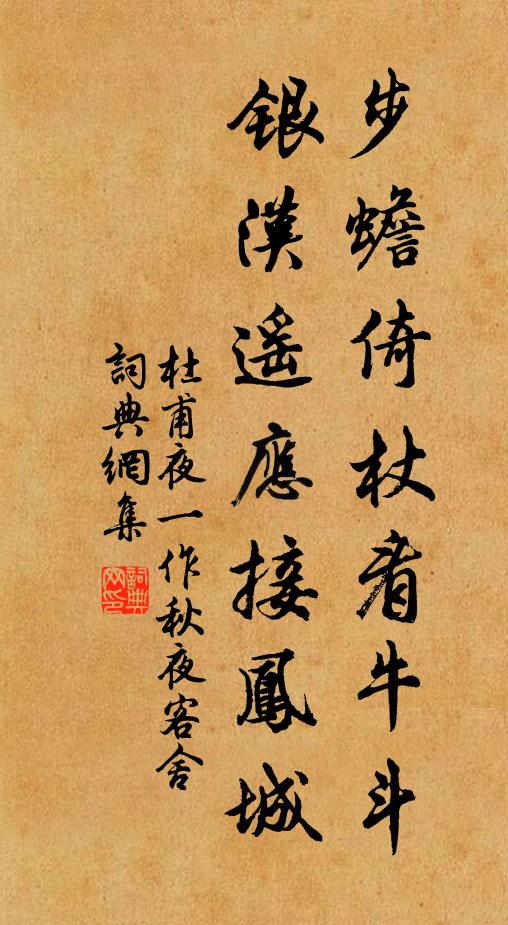 步蟾倚杖看牛斗
銀漢遥應接鳳城
杜甫夜一作秋夜客舍
詞典網集
詞典網印